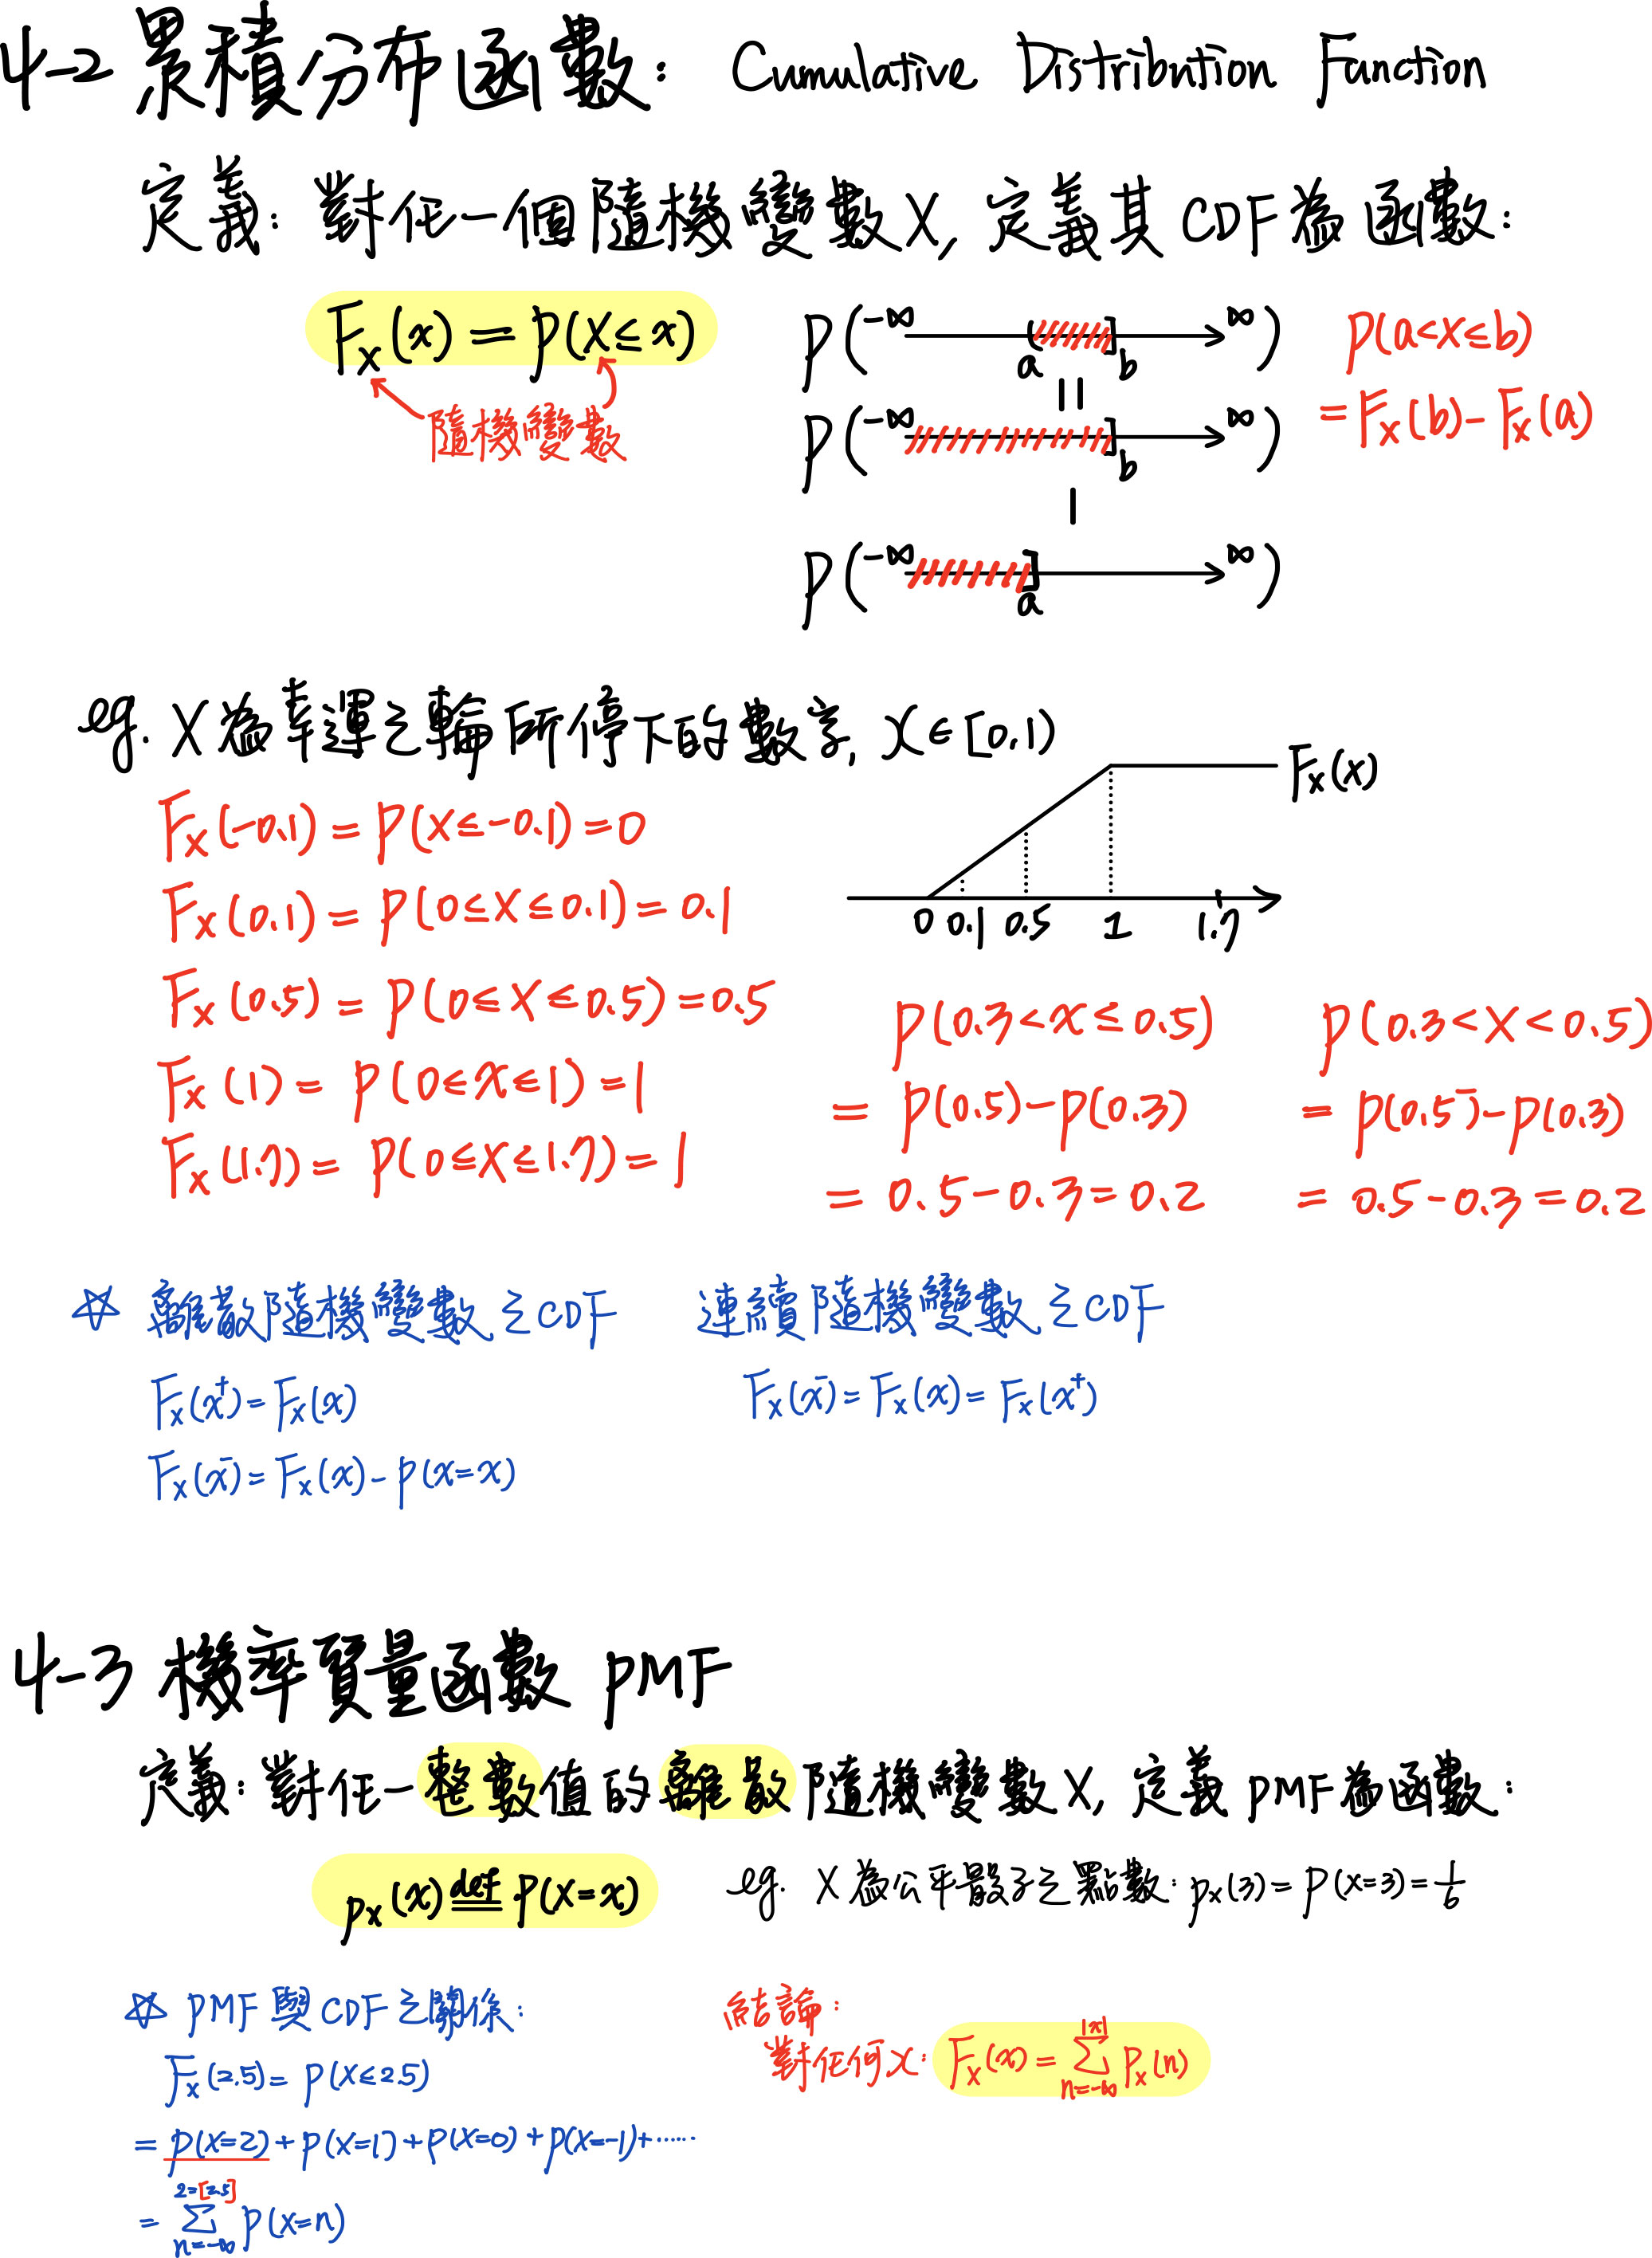 4-2 累積分布函數: Cumulative Distribution Function
定義: 對任一個隨機變數X, 定義其CDF為函數:
Fx(x) = P(X≤x)
隨機變數
P(-∞ ( a ] b ∞)
P(a<X≤b)
= Fx(b) - Fx(a)
=
P(-∞ ] b ∞)
-
P(-∞ ] a ∞)
eg. X為幸運之輪所停下的數字, X∈[0,1)
Fx(x)
0 0.1 0.5 1 1.7
Fx(-0.1) = P(X≤-0.1) = 0
Fx(0.1) = P(0≤X≤0.1) = 0.1
Fx(0.5) = P(0≤X≤0.5) = 0.5
Fx(1) = P(0≤X≤1) = 1
Fx(1.7) = P(0≤X≤1.7) = 1
P(0.3<X≤0.5)
= P(0.5) - P(0.3)
= 0.5 - 0.3 = 0.2
P(0.3<X<0.5)
= P(0.5⁻) - P(0.3)
= 0.5 - 0.3 = 0.2
☆ 離散隨機變數之CDF
Fx(x⁺) = Fx(x)
Fx(x⁻) = Fx(x) - P(X=x)
連續隨機變數之CDF
Fx(x⁻) = Fx(x) = Fx(x⁺)
4-3 機率質量函數 PMF
定義: 對任一整數值的離散隨機變數X, 定義PMF為函數:
px(x) def= P(X=x)
eg. X為公平骰子之點數: px(3) = P(X=3) = 1/6
☆ PMF與CDF之關係:
Fx(2.5) = P(X≤2.5)
= P(X=2) + P(X=1) + P(X=0) + P(X=-1) + ......
2=[2.5]
= Σ P(X=n)
n=-∞
結論:
對任何x: Fx(x) = Σ_{n=-∞}^{|x|} Px(n)